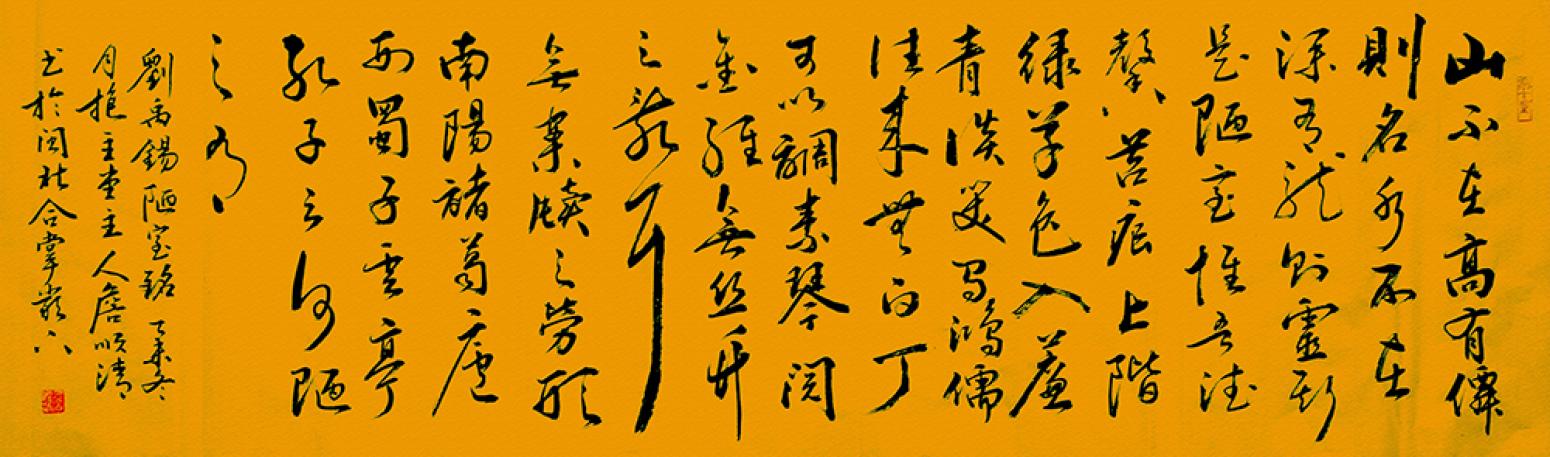 山不在高有僊
則名水不在
深有龍則靈斯
是陋室惟吾德
馨苔痕上階
綠草色入簾
青談笑有鴻儒
往來無白丁
可以調素琴閱
金經無絲竹
之亂耳
無案牘之勞形
南陽諸葛廬
西蜀子雲亭
孔子云何陋
之有
劉禹錫陋室銘 冬
月抱主人詹順清
书於閩北合掌岩下